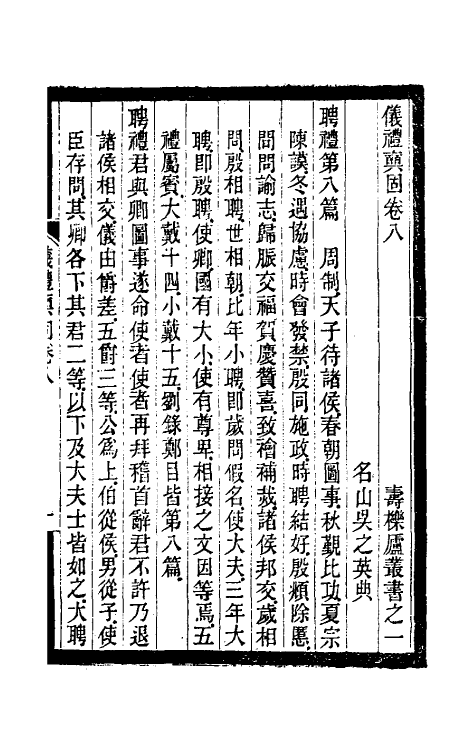 儀禮奭固卷八　壽櫟廬叢書之一
名山吳之英典
聘禮第八篇　周制天子待諸侯春朝圖事秋覲比功夏宗
陳謨冬遇協慮時會發禁殷同施政時聘結好殷頫除慝
間問諭志歸脤交福賀慶贊喜致禬補烖諸侯邦交歲相
問殷相聘世相朝比年小聘即歲問假名使大夫三年大
聘即殷聘使卿國有大小使有尊卑相接之文因等焉五
禮屬賓大戴十四小戴十五劉錄鄭目皆第八篇
聘禮君與卿圖事遂命使者使者再拜稽首辭君不許乃退
諸侯相交儀由爵差五爵三等公爲上伯從侯男從子使
臣存問其卿各下其君二等以下及大夫士皆如之大聘
儀禮奭固卷八　一